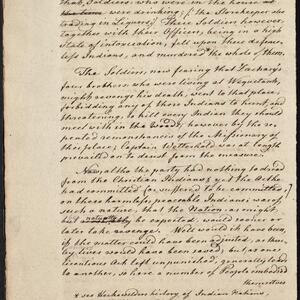 that, Soldiers who were in the house at
time were drinking; (the Storekeeper also
trading in Liquors) These Soldiers however,
together with their Officer, being in a high
state of intoxication, fell upon these defence-
less Indians, and murdered the whole of them.
The Soldiers, now fearing that Zachary's
four brothers, who were living at Wequetank,
might revenge his death, went to that place,
forbidding any of those Indians to hunt, and
threatening, to kill every Indian they should
meet with in the Woods; however by the re-
peated remonstrance of the Missionary of
this place; Captain Wetterhold was at length
prevailed on to desist from the measure.
Now, altho' the party had nothing to dread
from the Christian Indians yet the Acts
had committed (or suffered to be committed,)
on these harmless, peaceable Indians; was
of such a nature, that the Nation as might
be expected, would sooner or
later take revenge. Well would it have been,
if the matter could have been adjusted, as there-
by lives would have been saved; but as one
licentious Act left unpunished, generally leads
to another, so have a number of People imbibed
themselves
* see Heckewelders history of Indian Nations